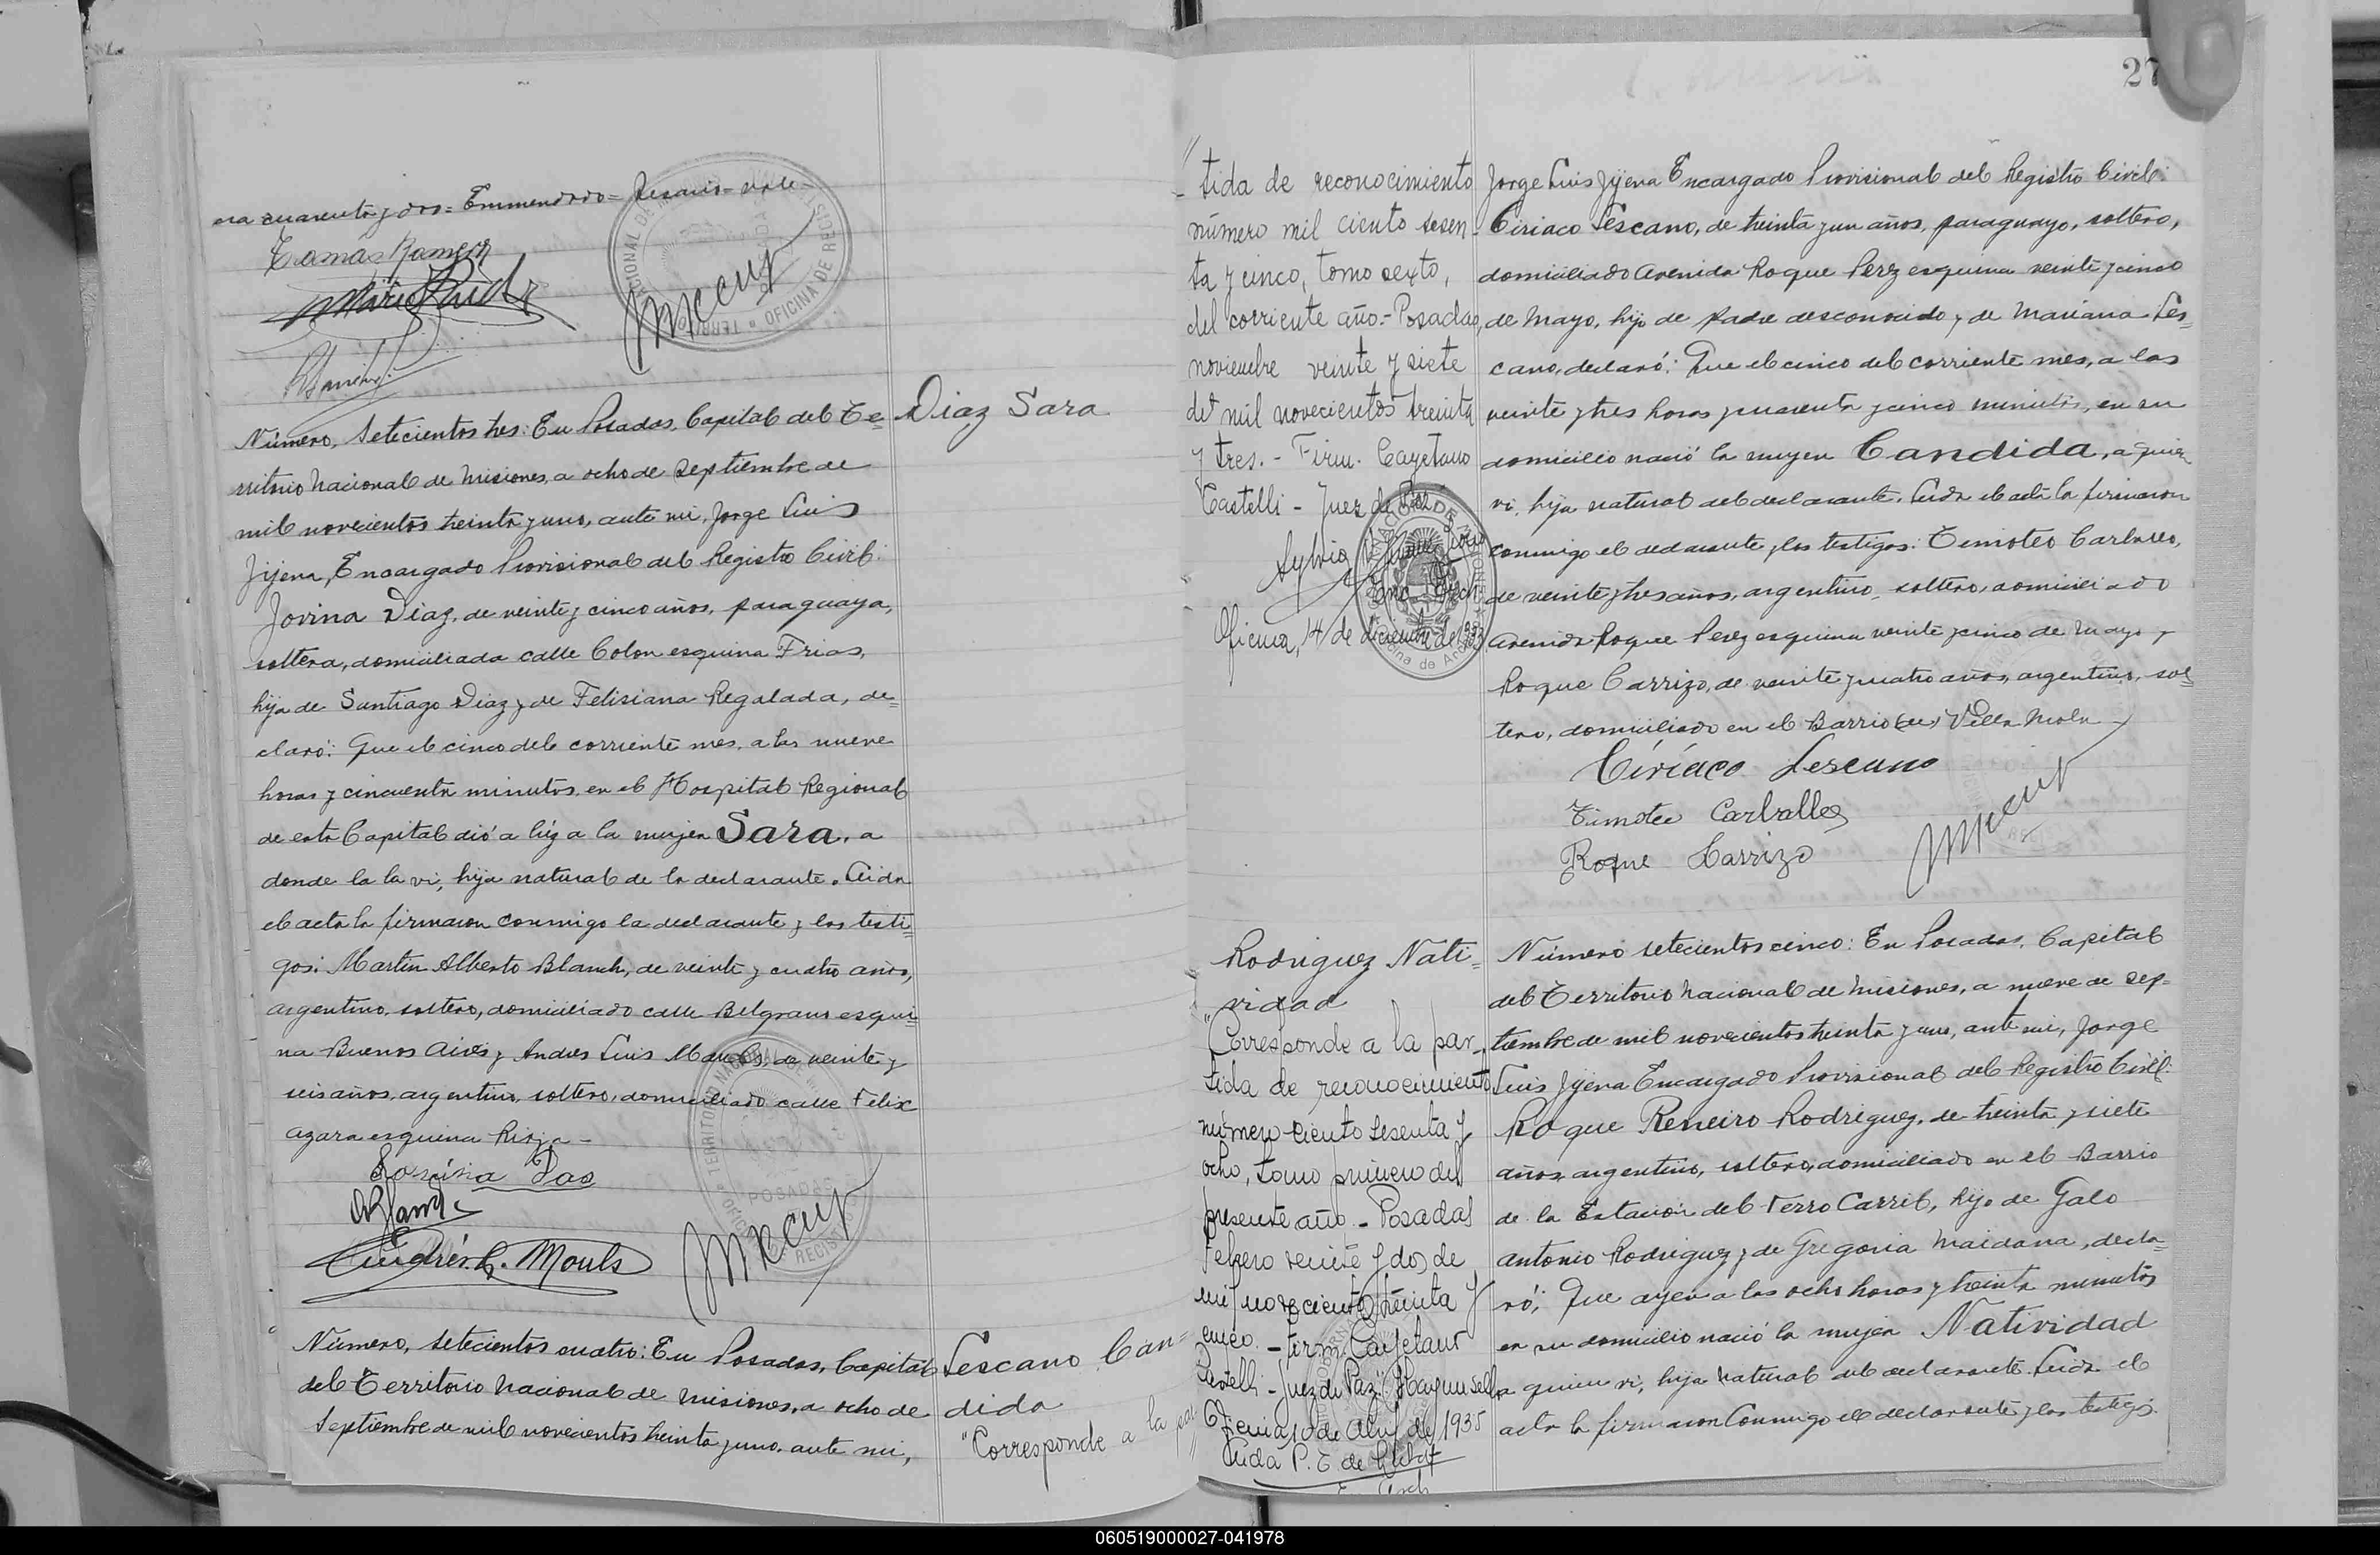 na cuarenta y dos = Emmendado = Vale
Número, Setecientos tres: En Posadas, Capital del Te=
rritorio Nacional de Misiones, a ocho de Septiembre de
mil novecientos treinta y uno, ante mi, Jorge Luis
Jijena, Encargado Provisional del Registro Civil:
Jovina Diaz, de veinte y cinco años, paraguaya,
soltera, domiciliada calle Colon esquina Frias,
hija de Santiago Diaz y de Felisiana Regalada, de=
claró: Que el cinco del corriente mes, a las nueve
horas y cincuenta minutos, en el Hospital Regional
de esta Capital dió a lúz a la mujer Sara, a
donde la la vi, hija natural de la declarante. Leida
el acta la firmaron conmigo la declarante y los testi=
gos: Martin Alberto Blanch, de veinte y cuatro años,
argentino, soltero, domiciliado calle Belgrano esqui=
na Buenos Aires y Andres Luis de veinte y
seis años, argentino, soltero, domiciliado calle Felix
azara esquina Rioja -
Andrés L. Mouls
Diaz Sara
Número, Setecientos cuatro: En Posadas, Capital
del Territorio Nacional de Misiones, a ocho de
Septiembre de mil novecientos treinta y uno, ante mi,
Lescano Can=
dida
"Corresponde a la par
27
tida de reconocimiento
número mil ciento sesen-
ta y cinco, tomo sexto,
del corriente año.- Posadas,
noviembre veinte y siete
de mil novecientos treinta
y tres. - Firm. Cayetano
Castelli - Juez de Paz
Oficina, 14 de diciembre de 1933
Jorge Luis Jijena Encargado Provisional del Registro Civil:
Ciriaco Lescano, de treinta y un años, paraguayo, soltero,
domiciliado Avenida Roque Perez esquina veinte y cinco
de Mayo, hijo de padre desconocido y de Mariana Les=
cano, declaró: Que el cinco del corriente mes, a las
veinte y tres horas y cuarenta y cinco minutos, en su
domicilio nació la mujer Candida, a quien
vi, hija natural del declarante. Leida el acta la firmaron
conmigo el declarante y los testigos: Timoteo Carballo,
de veinte y tres años, argentino, soltero, domiciliado
avenida Roque Perez esquina veinte y cinco de Mayo y
Roque Carrizo, de veinte y cuatro años, argentino, sol=
tero, domiciliado en el Barrio Villa
Ciríaco Lescano
Timoteo Carballo
Roque Carrizo
Rodriguez Nati=
vidad
"Corresponde a la par-
tida de reconocimiento
número ciento sesenta y
ocho, tomo primero del
presente año - Posadas
Febrero veinte y dos de
mil novecientos treinta y
cinco. - Firm. Cayetano
Castelli - Juez de Paz". Hay un sello
Oficina 10 de Abril de 1935
Número setecientos cinco: En Posadas, Capital
del Territorio Nacional de Misiones, a nueve de Sep=
tiembre de mil novecientos treinta y uno, ante mi, Jorge
Luis Jijena Encargado Provisional del Registro Civil:
Roque Reneiro Rodriguez, de treinta y siete
años, argentino, soltero, domiciliado en el Barrio
de la Estación del Ferro Carril, hijo de Galo
Antonio Rodriguez y de Gregoria Maidana, decla=
ró: Que ayer a las ocho horas y treinta minutos
en su domicilio nació la mujer Natividad
a quien vi, hija natural del declarante. Leida el
acta la firmaron conmigo el declarante y los testigos
060519000027-041978